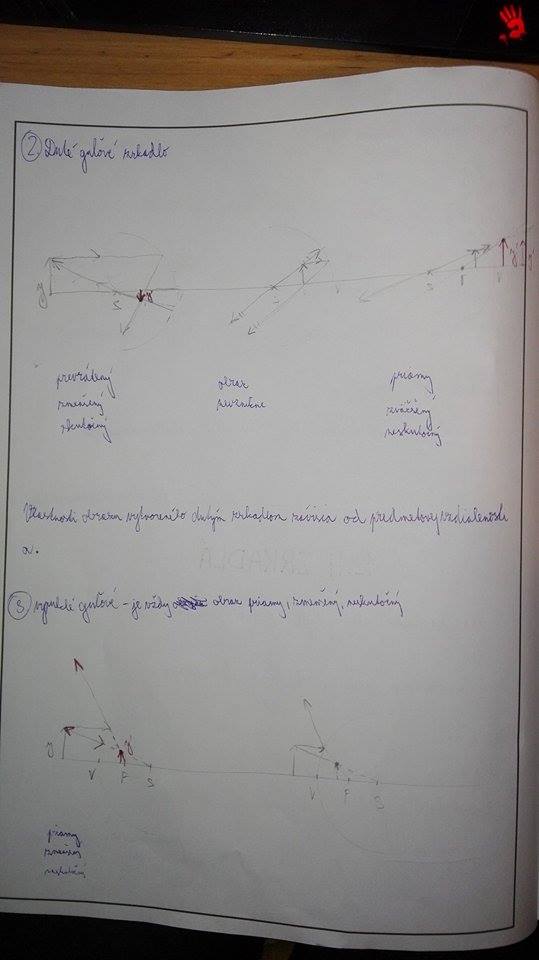 2. Duté guľové zrkadlo
y S y' S V S F V y' y'
prevrátený obraz priamy
zmenšený nevznikne zväčšený
skutočný neskutočný
Vlastnosti obrazu vytvoreného dutým zrkadlom závisia od predmetovej vzdialenosti
a.
3 vypuklé guľové - je vždy obraz priamy, zmenšený, neskutočný
y y'
V F S V F S
priamy
zmenšený
neskutočný